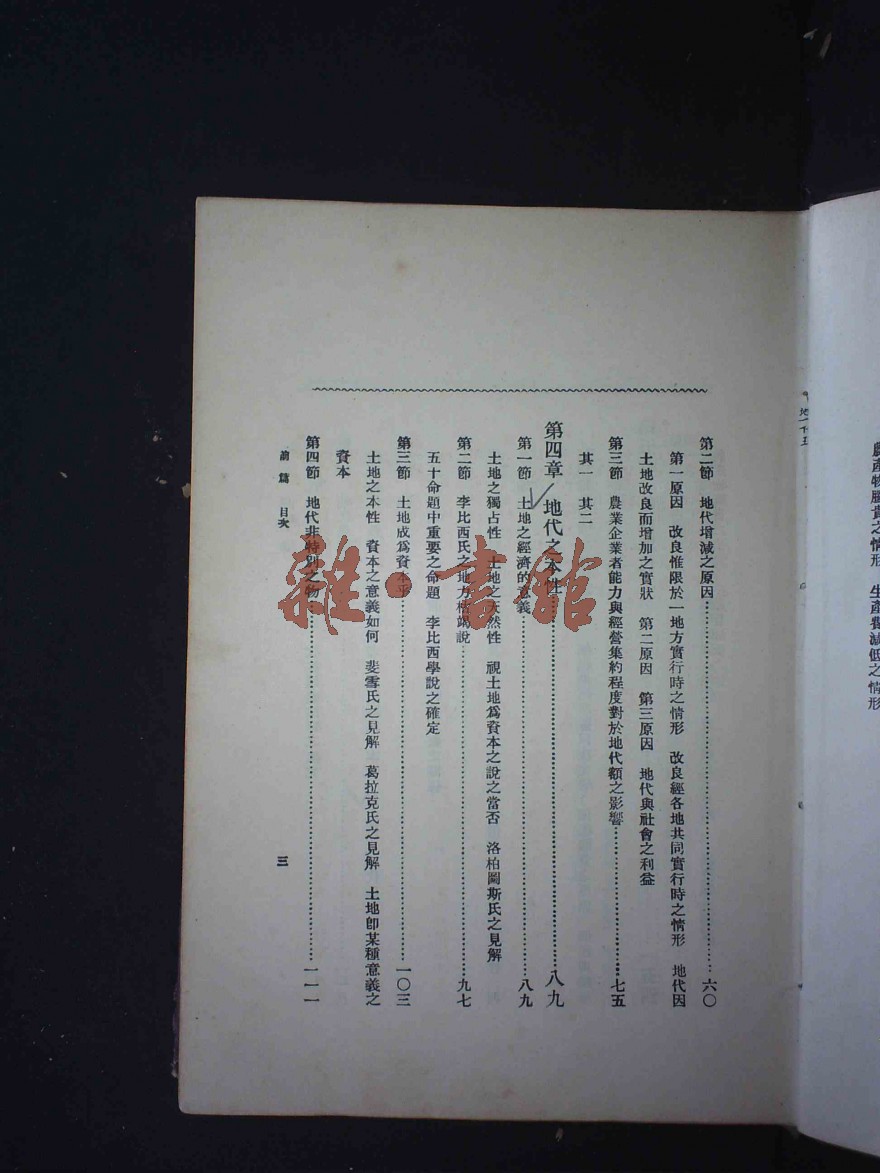 農產物騰貴之情形　生產費減低之情形
第二節　地代增減之原因……六〇
第一原因　改良惟限於一地方實行時之情形　改良經各地共同實行時之情形　地代因
土地改良而增加之實狀　第二原因　第三原因　地代與社會之利益
第三節　農業企業者能力與經營集約程度對於地代額之影響……七五
其一　其二
第四章　地代之本性……八九
第一節　土地之經濟的意義……八九
土地之獨占性　土地之天然性　視土地爲資本之說之當否　洛柏圖斯氏之見解
第二節　李比西氏之地力枯竭說……九七
五十命題中重要之命題　李比西學說之確定
第三節　土地成爲資本乎……一〇三
土地之本性　資本之意義如何　斐雪氏之見解　葛拉克氏之見解　土地卽某種意義之
資本
第四節　地代非特別之物……一一一
前篇　目次
三
雜·書館